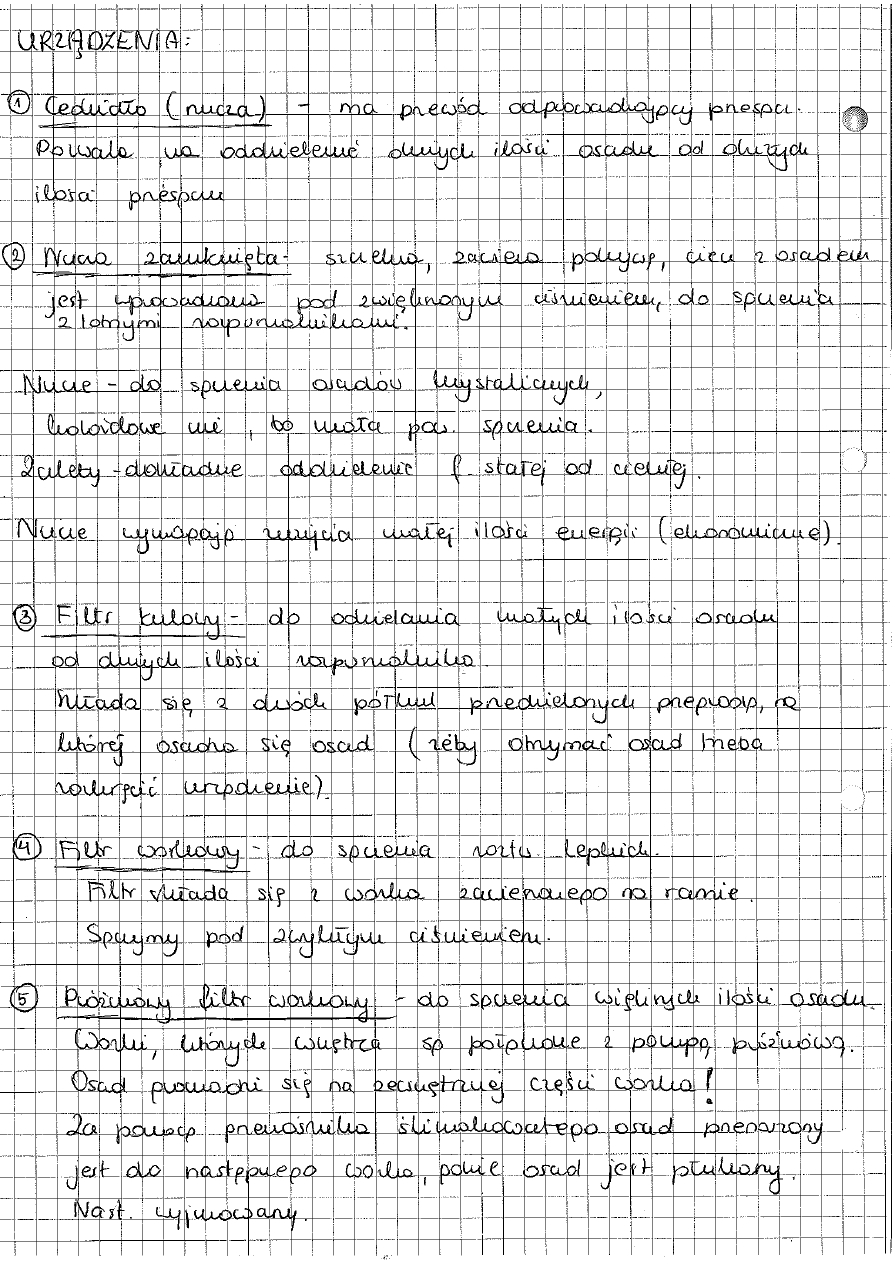 URZĄDZENIA:
① Cedzidło (nucza) - ma przewód odprowadzający przesącz.
Pozwala na oddzielenie dużych ilości osadu od dużych
ilości przesączu
② Nucza zamknięta - szczelna, zawiera pokrywę, ciecz z osadem
jest wprowadzana pod zwiększonym ciśnieniem, do sączenia
z lotnymi rozpuszczalnikami.
Nucze - do sączenia osadów krystalicznych,
koloidowe nie, bo mała pow. sączenia.
Zalety - dokładne oddzielenie f. stałej od ciekłej.
Nucze wymagają zużycia małej ilości energii (ekonomiczne).
③ Filtr kulowy - do oddzielania małych ilości osadu
od dużych ilości rozpuszczalnika.
Składa się z dwóch półkul przedzielonych przegrodą, na
której osadza się osad (żeby otrzymać osad trzeba
rozkręcić urządzenie).
④ Filtr workowy - do sączenia roztw. lepkich.
Filtr składa się z worka zawieszonego na ramie.
Sączymy pod zwykłym ciśnieniem.
⑤ Próżniowy filtr workowy - do sączenia większych ilości osadu.
Worki, których wnętrza są połączone z pompą próżniową.
Osad gromadzi się na zewnętrznej części worka!
Za pomocą przenośnika ślimakowatego osad przenoszony
jest do następnego worka, gdzie osad jest płukany.
Nast. wyjmowany.